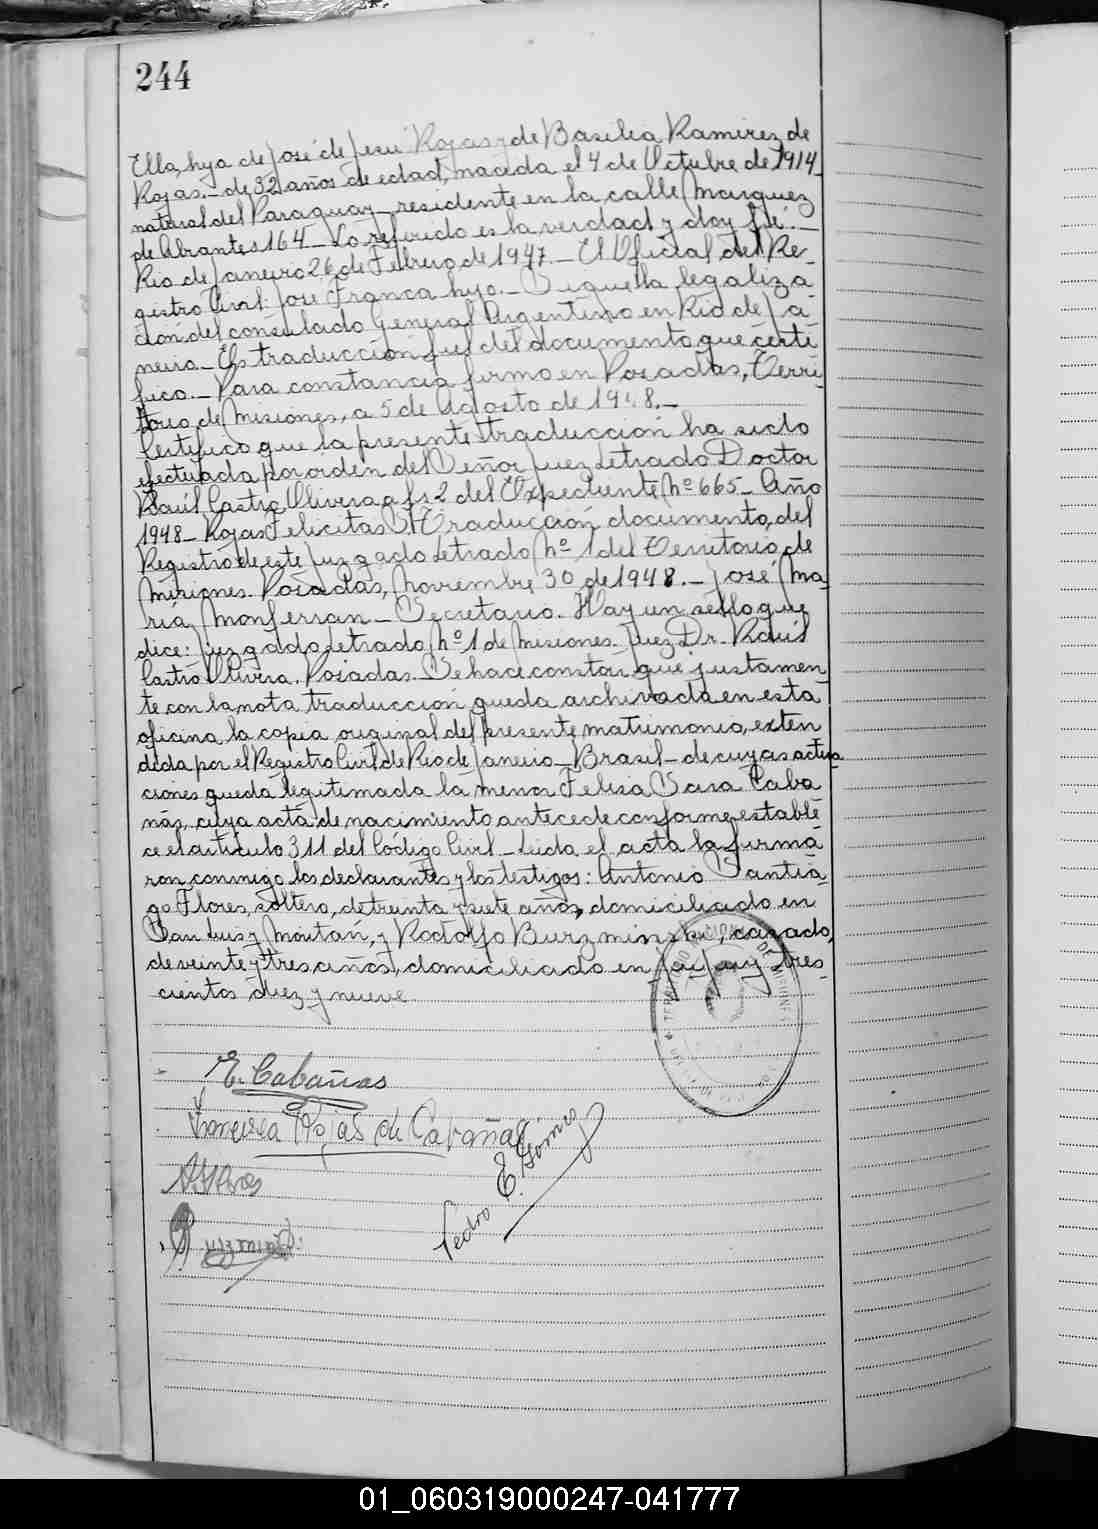 244
Ella, hija de José de Jesús Rojas y de Basilia Ramirez de
Rojas.- de 32 años de edad, nacida el 4 de Octubre de 1914
natural del Paraguay - residente en la calle Marquez
de Abrantes 164 - Lo referido es la verdad y doy fé. -
Rio de Janeiro 26 de Febrero de 1947. - El Oficial del Re-
gistro Civil: José Franca hijo. - Sigue la legaliza
ción del consulado General Argentino en Rio de Ja-
neiro - Es traducción fiel del documento que certi
fico. - Para constancia firmo en Posadas, Terri-
torio de Misiones, a 5 de Agosto de 1948. -
Certifico que la presente traducción ha sido
efectuada por orden del Señor Juez Letrado Doctor
Raúl Castro Olivera a fs 2 del Expediente Nº 665 - Año
1948 - Rojas Felicitas S/ Traducción documento, del
Registro de este Juzgado Letrado Nº 1 del Territorio de
Misiones. Posadas, Noviembre 30 de 1948. - José Ma-
ría Monferran - Secretario. Hay un sello que
dice: Juzgado Letrado Nº 1 de Misiones. Juez Dr. Raúl
Castro Olivera. Posadas. Se hace constar que justamen
te con la nota traducción queda archivada en esta
oficina la copia original del presente matrimonio, exten
dida por el Registro Civil de Rio de Janeiro - Brasil - de cuyas actua
ciones queda legitimada la menor Felisa Sara Caba
ñas, cuya acta de nacimiento antecede conforme estable
ce el artículo 311 del Código Civil - Leida el acta la firma
ron conmigo los declarantes y los testigos: Antonio Santia-
go Flores, soltero, de treinta y siete años, domiciliado en
San Luis y Moritán, y Rodolfo Burzminski, casado,
de veinte y tres años, domiciliado en Jujuy tres-
cientos diez y nueve
TERRITORIO NACIONAL DE MISIONES
E. Cabañas
Rojas de Cabañas
A. S. Flores
Pedro E. Gómez
01_060319000247-041777